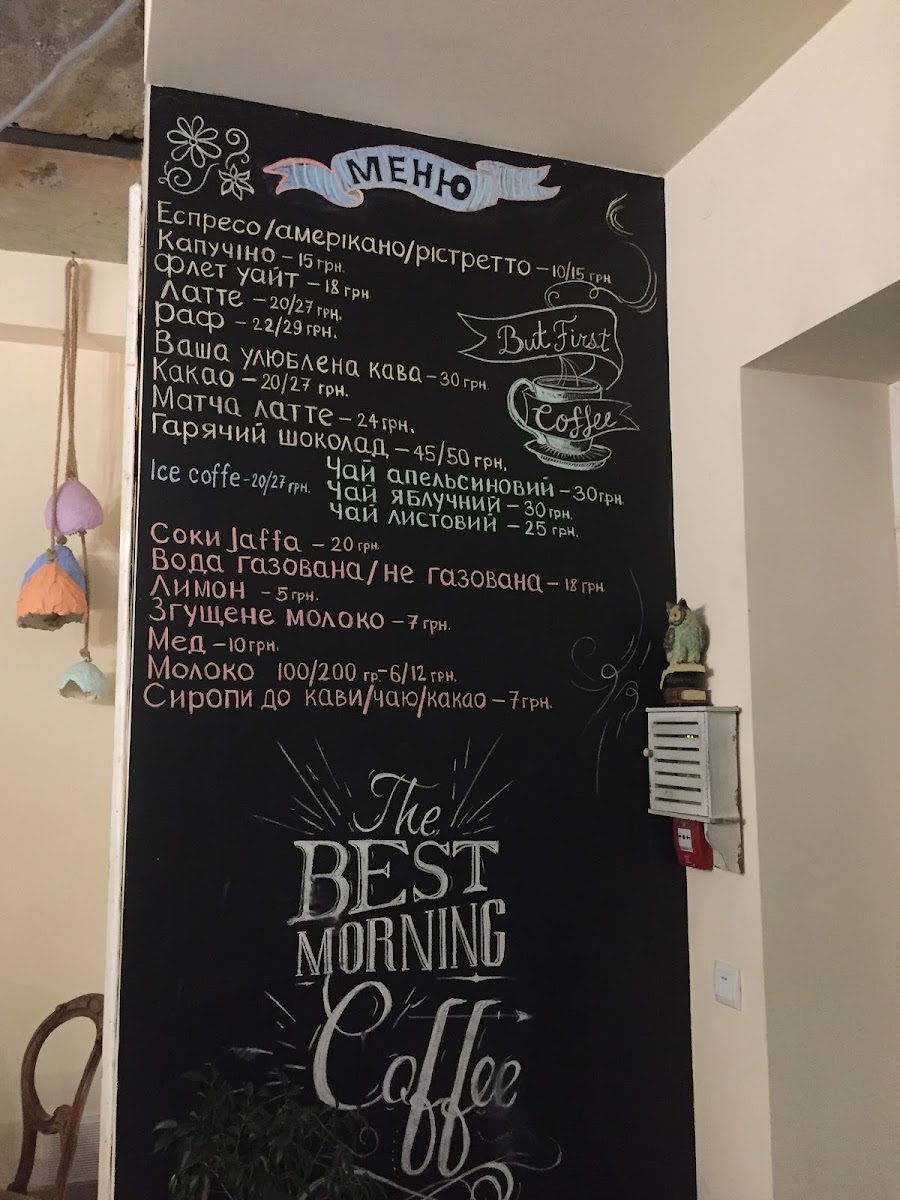 МЕНЮ
Еспресо/амерікано/рістретто – 10/15 грн
Капучіно – 15 грн.
Флет уайт – 18 грн
Латте – 20/27 грн.
Раф – 22/29 грн.
But First
Coffee
Ваша улюблена кава – 30 грн.
Какао – 20/27 грн.
Матча латте – 24 грн.
Гарячий шоколад – 45/50 грн.
Ice coffe – 20/27 грн.
Чай апельсиновий – 30 грн.
Чай яблучний – 30 грн.
Чай листовий – 25 грн.
Соки Jaffa – 20 грн.
Вода газована/не газована – 18 грн.
Лимон – 5 грн.
Згущене молоко – 7 грн.
Мед – 10 грн.
Молоко 100/200 гр.– 6/12 грн.
Сиропи до кави/чаю/какао – 7 грн.
The
BEST
MORNING
Coffee